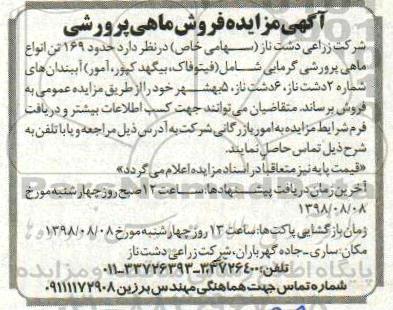 آگهی مزایده فروش ماهی پرورشی
شرکت زراعی دشت ناز (سهامی خاص) در نظر دارد حدود ۱۶۹ تن انواع
ماهی پرورشی گرمابی شامل (فیتوفاک، بیگهد، کپور، آمور) آببندان‌های
شماره ۲ دشت ناز، ۶ دشت ناز، ۵ مهشهر خود را از طریق مزایده عمومی به
فروش برساند. متقاضیان می‌توانند جهت کسب اطلاعات بیشتر و دریافت
فرم شرایط مزایده به امور بازرگانی شرکت به آدرس ذیل مراجعه و یا با تلفن به
شرح ذیل تماس حاصل نمایند.
«قیمت پایه نیز متعاقباً در اسناد مزایده اعلام می گردد»
آخرین زمان دریافت پیشنهادها: ساعت ۱۲ صبح روز چهارشنبه مورخ
۱۳۹۸/۰۸/۰۸
زمان بازگشایی پاکت‌ها: ساعت ۱۳ روز چهارشنبه مورخ ۱۳۹۸/۰۸/۰۸
مکان: ساری - جاده گهرباران، شرکت زراعی دشت ناز
تلفن: ۳۳۷۲۶۴۰۰-۳۳۷۲۶۳۹۳-۰۱۱
شماره تماس جهت هماهنگی مهندس برزین ۰۹۱۱۱۱۷۲۹۰۸